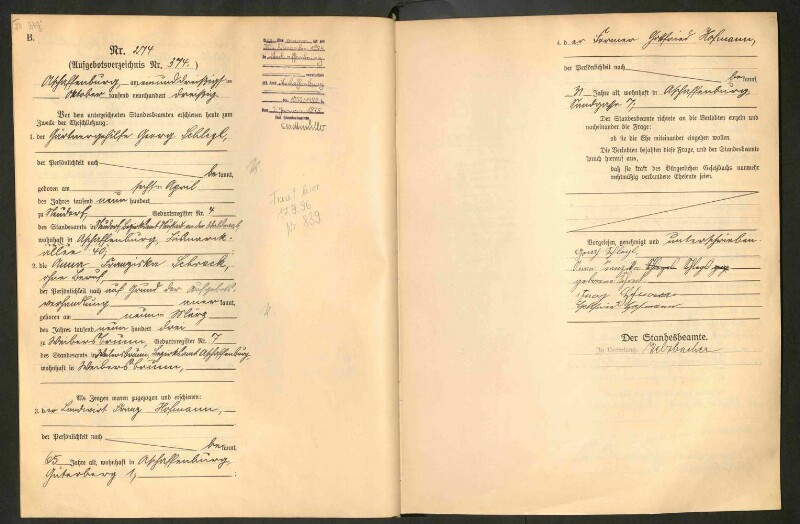 B.
Nr. 274
(Aufgebotsverzeichnis Nr. 374.)
Aschaffenburg, am einunddreißigsten
Oktober tausend neunhundert dreißig.
Vor dem unterzeichneten Standesbeamten erschienen heute zum
Zwecke der Eheschließung:
1. der Gärtnergehilfe Georg Schlegl,
der Persönlichkeit nach
be kannt,
geboren am sechsten April
des Jahres tausend neun hundert
zu Neudorf, Geburtsregister Nr. 4
des Standesamts in Neudorf, Bezirksamt Neustadt an der Waldnaab
wohnhaft in Aschaffenburg, Bismarck-
allee 40,
2. die Anna Franziska Schreck,
ohne Beruf,
der Persönlichkeit nach auf Grund der Aufgebots-
verhandlung aner kannt,
geboren am neunten März
des Jahres tausend neun hundert drei
zu Weibersbrunn, Geburtsregister Nr. 7
des Standesamts in Weibersbrunn, Bezirksamt Aschaffenburg,
wohnhaft in Weibersbrunn,
Als Zeugen waren zugezogen und erschienen:
3. der Landwirt Franz Hofmann,
der Persönlichkeit nach
be kannt,
65 Jahre alt, wohnhaft in Aschaffenburg,
Güterberg 1,
;
17.9.96
839
4. der Former Gottfried Hofmann,
der Persönlichkeit nach
be kannt,
31 Jahre alt, wohnhaft in Aschaffenburg
Sandgasse 7,
Der Standesbeamte richtete an die Verlobten einzeln und
nacheinander die Frage:
ob sie die Ehe miteinander eingehen wollen.
Die Verlobten bejahten diese Frage, und der Standesbeamte
sprach hierauf aus,
daß sie kraft des Bürgerlichen Gesetzbuchs nunmehr
rechtmäßig verbundene Eheleute seien.
Vorgelesen, genehmigt und unterschrieben.
Georg Schlegl,
Anna Schlegl
geborene
Franz Hofmann
Gottfried Hofmann
Der Standesbeamte.
In Vertretung: